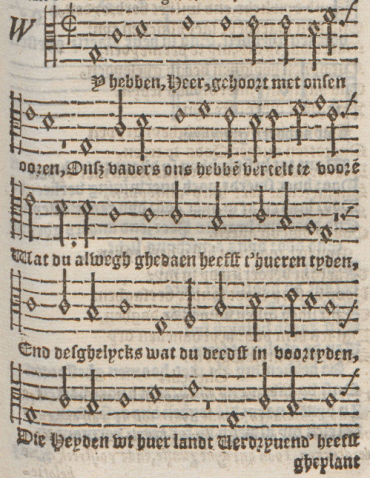 W
Y hebben, Heer, gehoort met onsen
ooren, Onsz vaders ons hebbē vertelt te voorē
Wat du alwegh ghedaen heefst t'hueren tyden,
End desghelycks wat du deedst in voortyden,
Die Heyden wt huer landt Verdryuend' heefst
gheplant